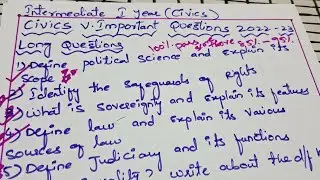 Intermediate I year (Civics)
Civics V.Important Questions 2022-23
Long Questions
100% pass
95%
1) Define political science and explain its
scope
2) Identify the safeguards of rights
3) What is sovereignty and explain its features
4) Define law and explain its various
sources of law
5) Define Judiciary and its functions
write about the